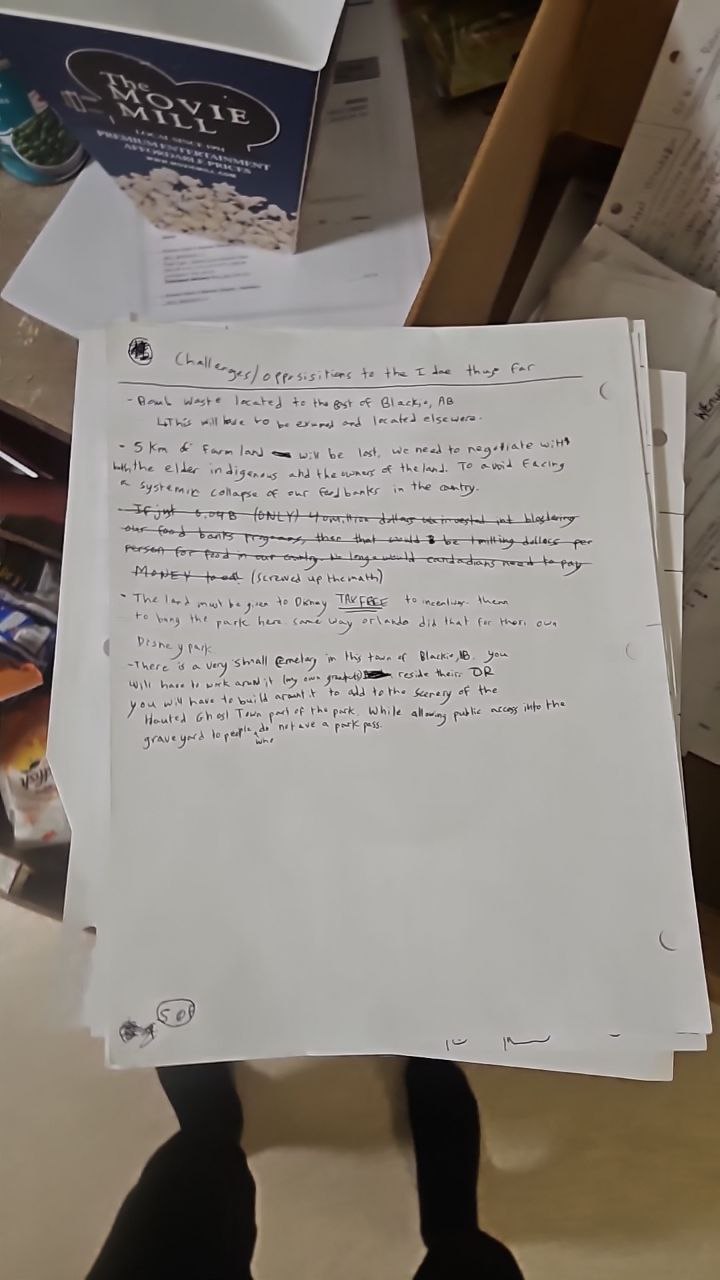 The
MOVIE
MILL
LOCAL SINCE 1994
PREMIUM ENTERTAINMENT
AFFORDABLE PRICES
WWW.MOVIEMILL.COM
Challenges/opposisitions to the Idae thus far
- Bomb Waste located to the East of Blackie, AB
↳This will have to be exumed and located elsewere.
- 5 Km of Farm land will be lost, we need to negotiate with
both the elder indigenous and the owners of the land. To avoid facing
a systemic collapse of our food banks in the cuntry.
- If just 0.04B (ONLY) 40 million dollars was invested int blostering
our food banks Programs, then that would B be 1 milling dollars per
person for food in our cuntry. No longe would candadians need to pay
MONEY to eat (screwed up the math)
- The land must be given to Disney TAX FREE to incentivize them
to bring the park here same way orlando did that for their own
Disney park
- There is a very small Cemetary in this town of Blackie, AB. you
will have to work around it (my own reside theirs OR
you will have to build arount it to add to the scenery of the
Hauted Ghost Town part of the park. While allowing public access into the
grave yard to people who do not ave a park pass.